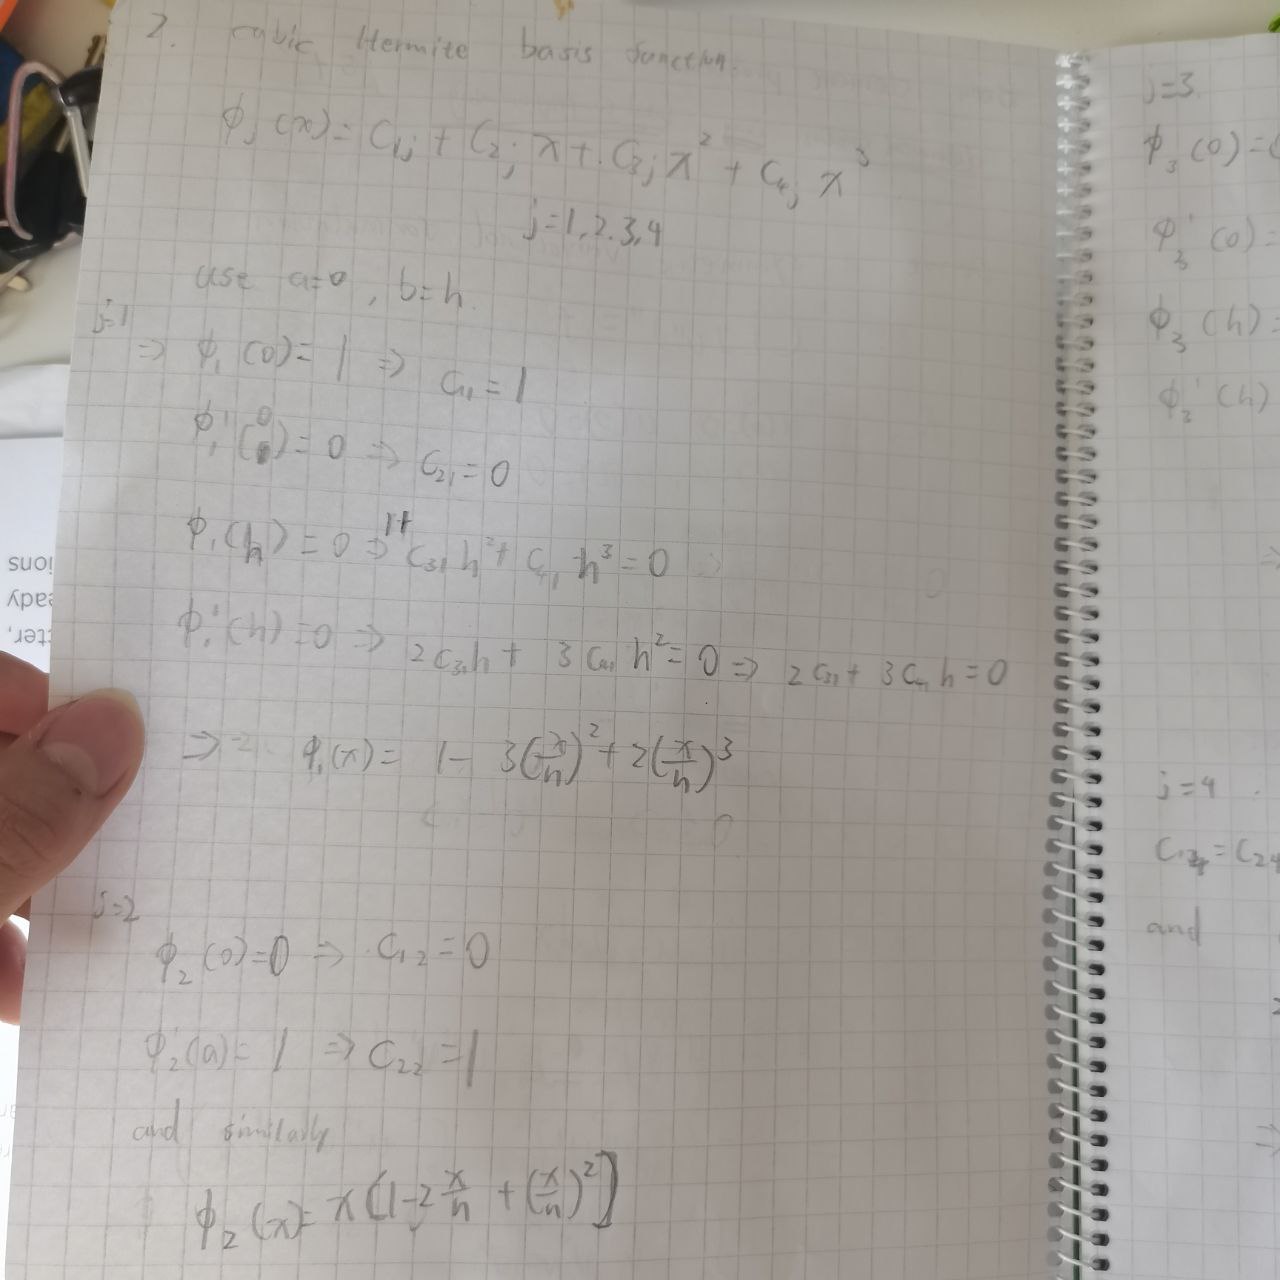 2. cubic Hermite basis function.
ϕj (x) = C1j + C2j x + C3j x² + C4j x³
j=1,2.3,4
use a=0, b=h.
j=1
⇒ ϕ1 (0) = 1 ⇒ C11 = 1
ϕ1' (0) = 0 ⇒ C21 = 0
ϕ1 (h) = 0 ⇒ 1+ C31 h² + C41 h³ = 0
ϕ1' (h) = 0 ⇒ 2 C31 h + 3 C41 h² = 0 ⇒ 2 C31 + 3 C41 h = 0
⇒ ϕ1(x) = 1 - 3(x/h)² + 2(x/h)³
j=2
ϕ2 (0) = 0 ⇒ C12 = 0
ϕ2' (a) = 1 ⇒ C22 = 1
and similarly
ϕ2 (x) = x [1-2 x/h + (x/h)²]
j=3
ϕ3 (0) =
ϕ3' (0) =
ϕ3 (h) =
ϕ3' (h)
⇒
j=4
and
⇒
ions
tter,